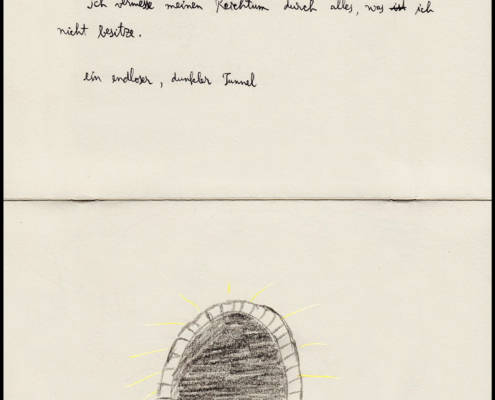 ich vermesse meinen Reichtum durch alles, was ich
nicht besitze.
ein endloser, dunkler Tunnel